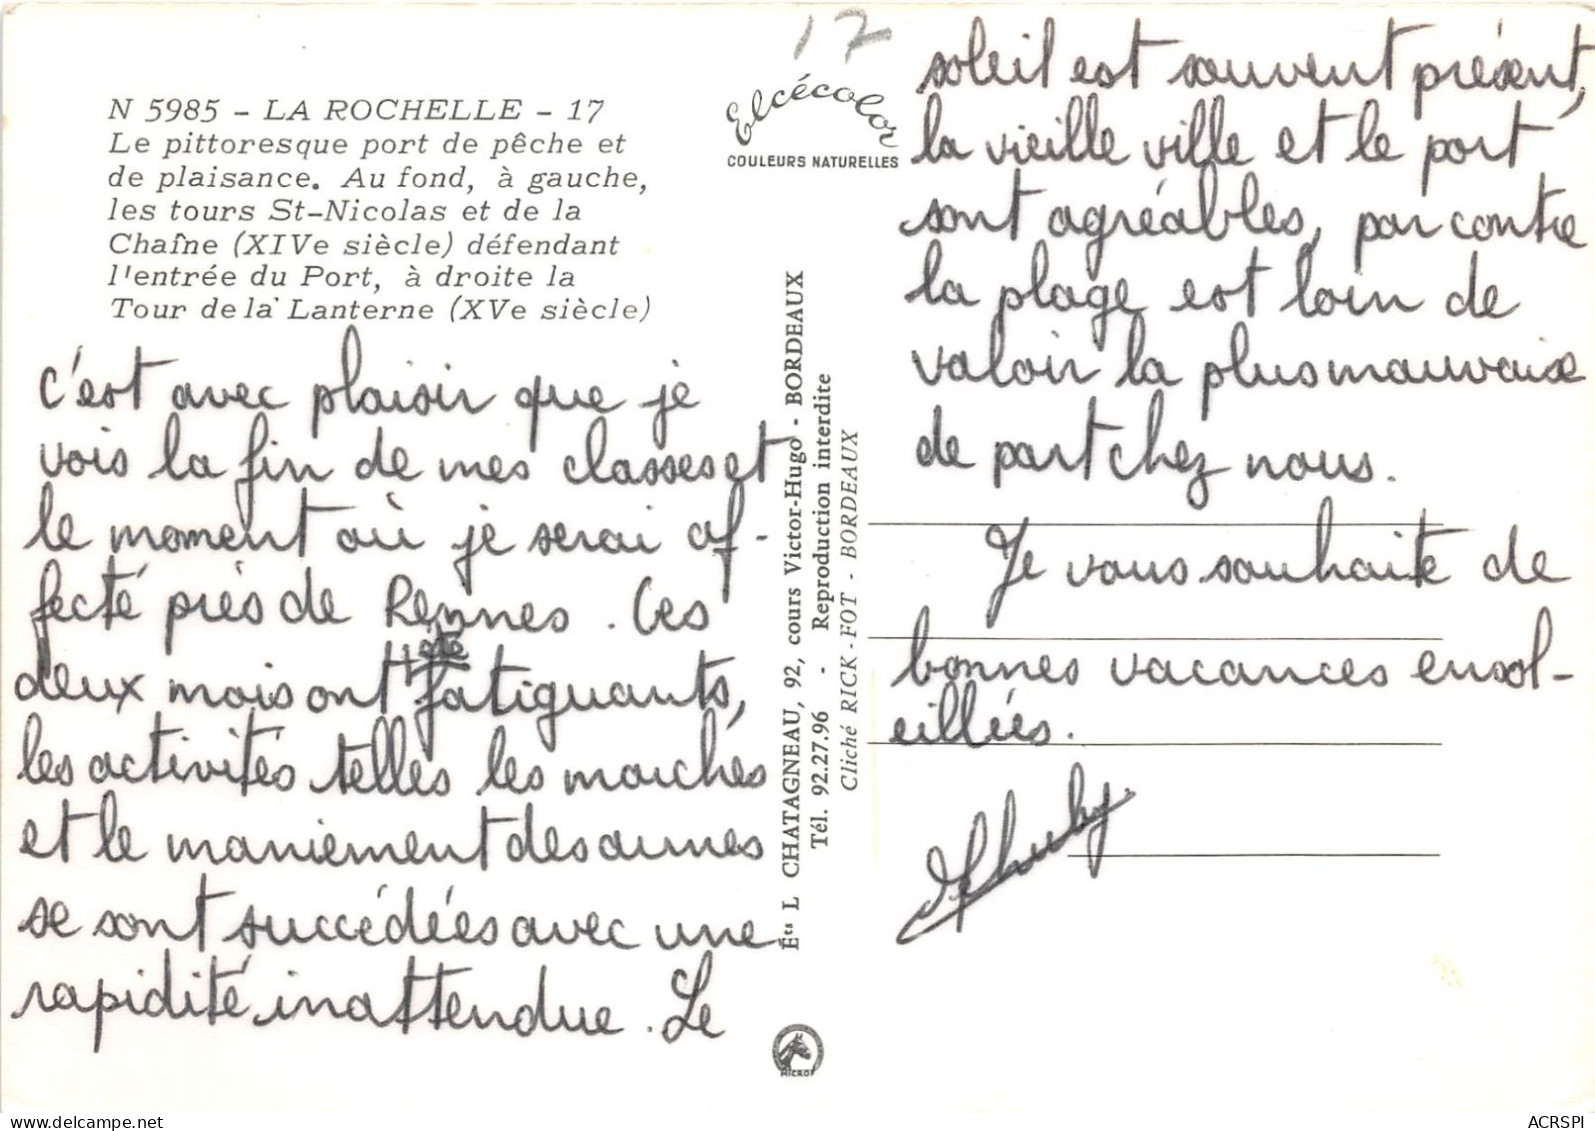 17
N 5985 - LA ROCHELLE - 17
Le pittoresque port de pêche et
de plaisance. Au fond, à gauche,
les tours St-Nicolas et de la
Chaîne (XIVe siècle) défendant
l'entrée du Port, à droite la
Tour de la Lanterne (XVe siècle)
Elcécolor
COULEURS NATURELLES
C'est avec plaisir que je
vois la fin de mes classes et
le moment où je serai af-
fecté près de Rennes. Ces
deux mois ont été
fatiguants,
les activités telles les marches
et le maniement des armes
se sont succédées avec une
rapidité inattendue. Le
Éts L CHATAGNEAU, 92, cours Victor-Hugo - BORDEAUX
Tél. 92.27.96 - Reproduction interdite
Cliché RICK-FOT - BORDEAUX
MICRO
soleil est souvent présent,
la vieille ville et le port
sont agréables, par contre
la plage est loin de
valoir la plus mauvaise
de part chez nous.
Je vous souhaite de
bonnes vacances ensol-
eillées.
ACRSPI